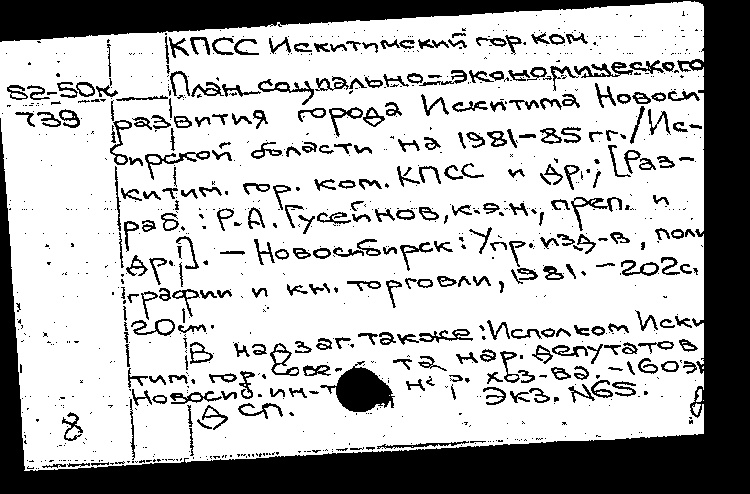 КПСС Искитимский гор. ком.
82-50к План социально-экономического
739 развития города Искитима Новоси-
бирской области на 1981-85 гг. / Ис-
китим. гор. ком. КПСС и др.; [Раз-
раб.: Р.А. Гусейнов, к.э.н., преп. и
др.]. - Новосибирск: Упр. изд-в, поли
графии и кн. торговли, 1981. - 202с.
20см.
В надзаг. также: Исполком Иски
тим. гор. Сове- та нар. депутатов
Новосиб. ин-т хоз-ва. - 160 эк
Экз. N65.
ДСП.
8